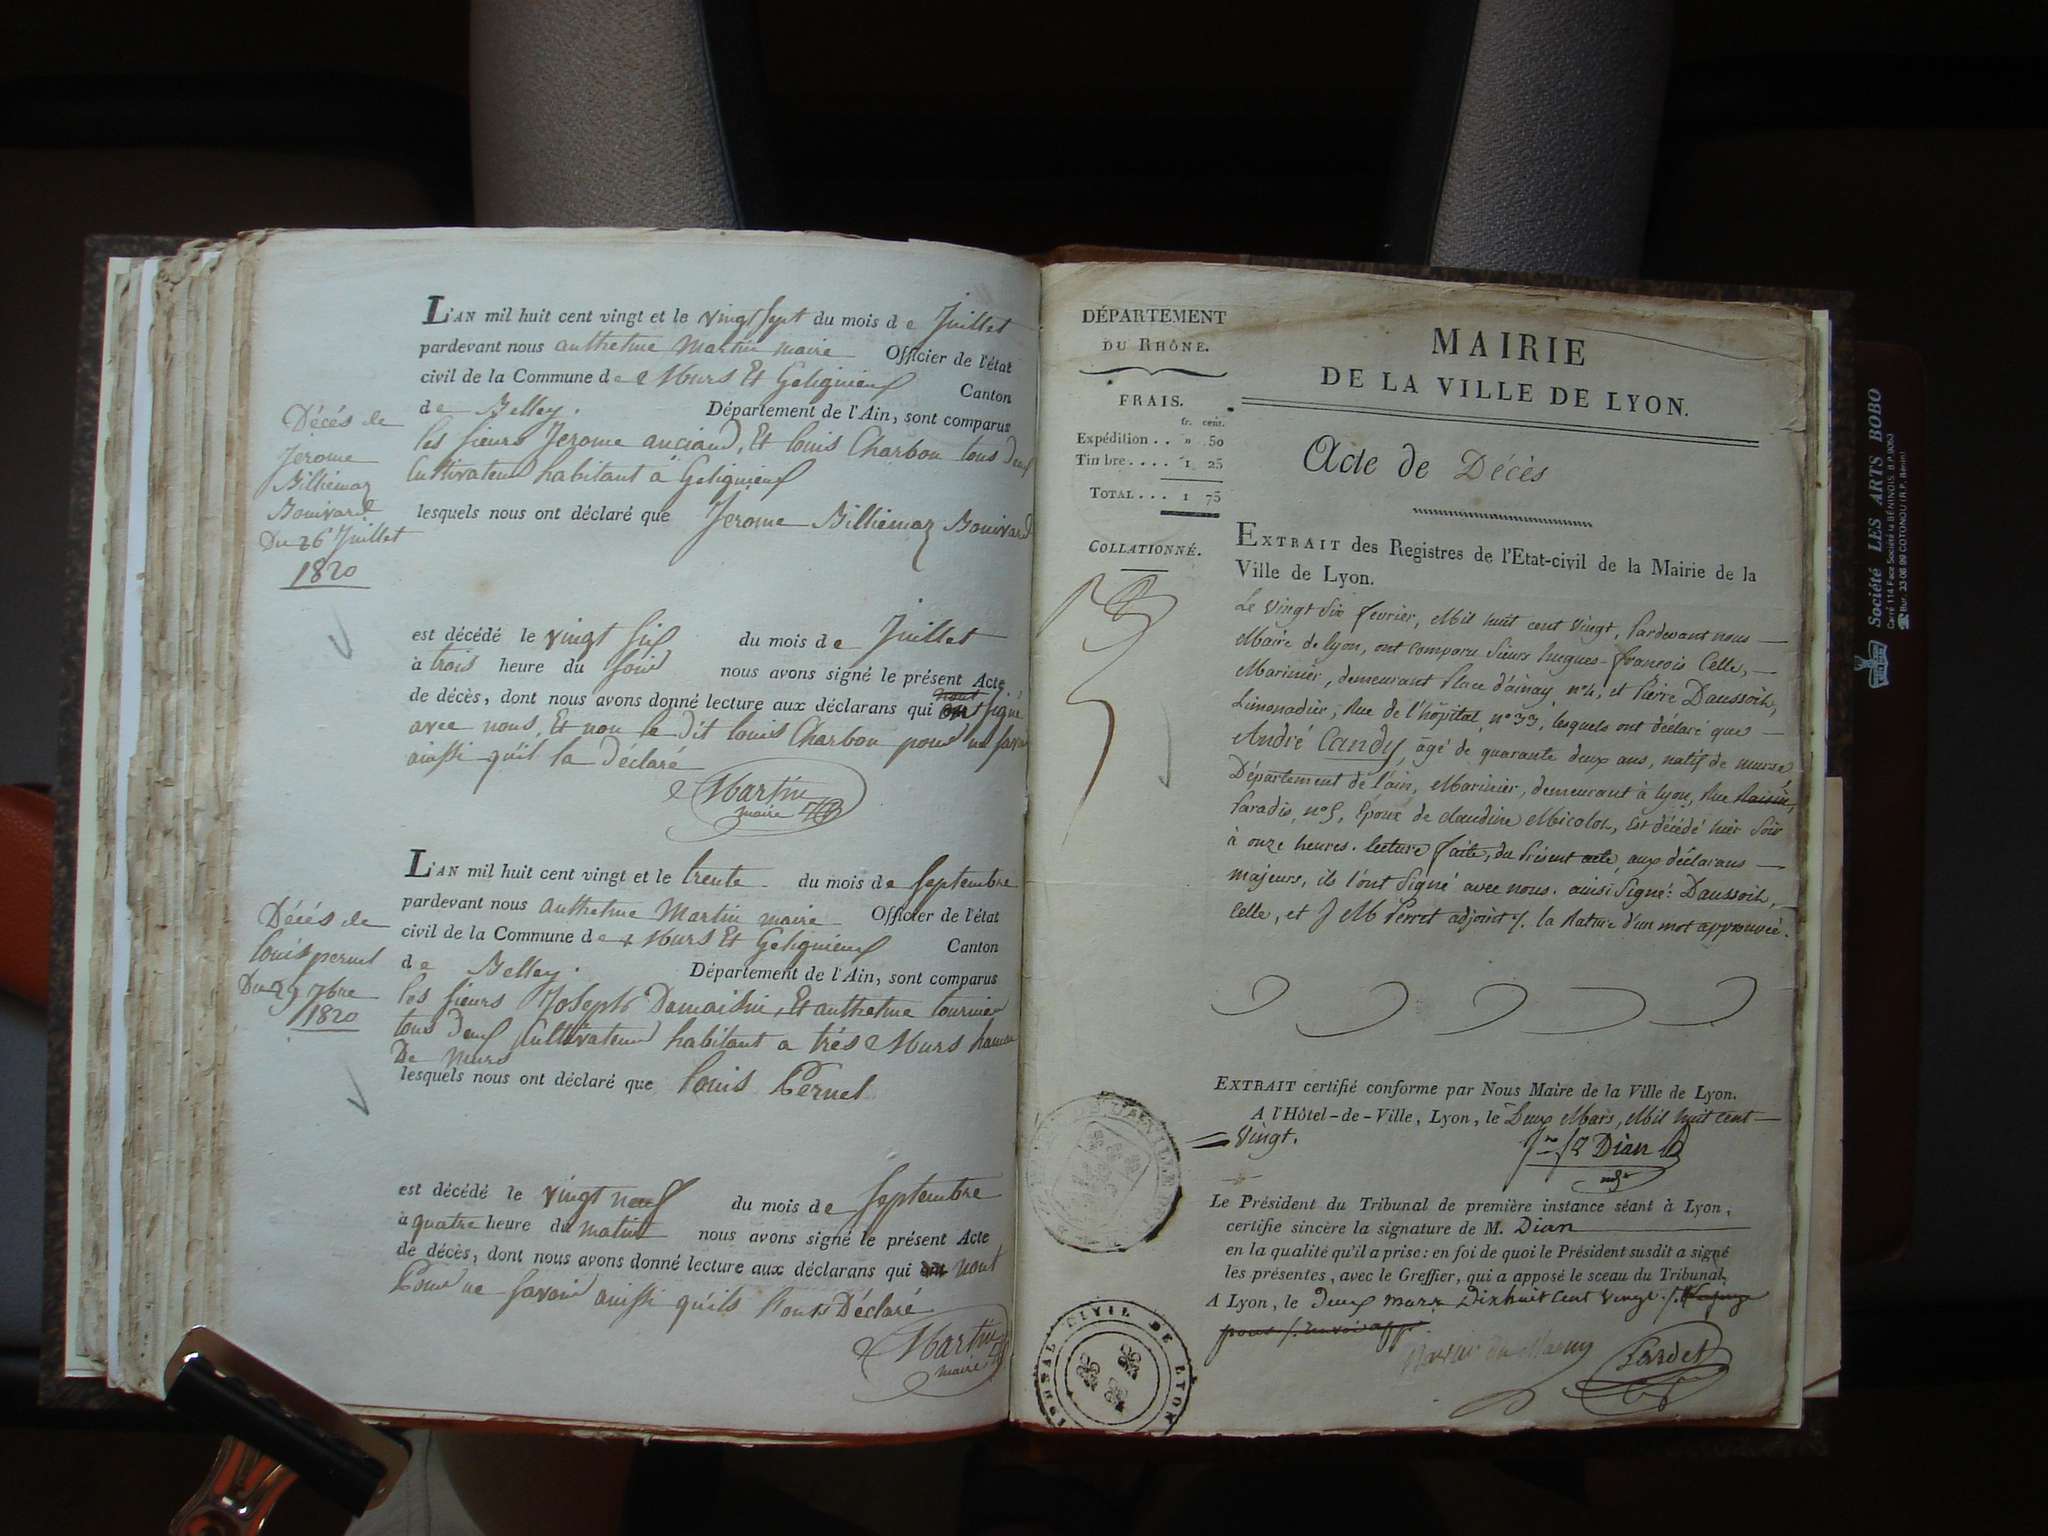 L'AN mil huit cent vingt et le vingt sept du mois de Juillet
pardevant nous anthelme Martin maire Officier de l'état
civil de la Commune de Murs Et Geligneux Canton
de Belley. Département de l'Ain, sont comparus
les sieurs Jerome anciand, Et louis Charbon tous deux
Cultivateurs habitant à Geligneux
lesquels nous ont déclaré que Jerome Billiemaz Bouivard
Décés de
Jerome
Billiemaz
Bouivard
Du 26 Juillet
1820
est décédé le vingt six du mois de Juillet
à trois heure du soir nous avons signé le présent Acte
de décès, dont nous avons donné lecture aux déclarans qui ont signé
avec nous, Et non le dit louis Charbon pour ne savoir
ainssi qu'il la déclaré
Martin
maire
L'AN mil huit cent vingt et le trente du mois de Septembre
pardevant nous anthelme Martin maire Officier de l'état
civil de la Commune de Murs Et Geligneux Canton
de Belley. Département de l'Ain, sont comparus
les sieurs Joseph Damaisin, Et anthelme tournier
tous deux Cultivateurs habitant a trés Murs hameau
De Murs
lesquels nous ont déclaré que louis Pernet
Décés de
louis pernet
Du 29 7bre
1820
est décédé le vingt neuf du mois de Septembre
à quatre heure du matin nous avons signé le présent Acte
de décès, dont nous avons donné lecture aux déclarans qui nont
Pour ne savoir ainssi qu'ils l'ont Déclaré
Martin
maire
DÉPARTEMENT
DU RHÔNE.
FRAIS.
fr. cent.
Expédition . . » 50
Timbre . . . . 1 25
TOTAL . . . 1 75
COLLATIONNÉ.
MAIRIE
DE LA VILLE DE LYON.
Acte de Décès
EXTRAIT des Registres de l'Etat-civil de la Mairie de la
Ville de Lyon.
Le vingt six fevrier, Mil huit cent vingt, Pardevant nous
Maire de lyon, ont comparu Sieurs hugues-françois Celle,
Marinier, demeurant Place d'ainay n°4, et Pierre Daussoit,
Limonadier, Rue de l'hôpital, n°33, lesquels ont déclaré que
André Candy, âgé de quarante deux ans, natif de murs
Département de l'ain, Marinier, demeurant à lyon, Rue Raisin,
Paradis, n°5, Epoux de claudine Micolot, Est décédé hier Soir
à onze heures. lecture faite, du Présent acte, aux déclarans
majeurs, ils l'ont Signé avec nous. ainsi Signé: Daussoit,
Celle, et J M Perret adjoint. la Rature d'un mot approuvée.
EXTRAIT certifié conforme par Nous Maire de la Ville de Lyon.
A l'Hôtel-de-Ville, Lyon, le Deux Mars, Mil huit cent
Vingt.
Dian
Le Président du Tribunal de première instance séant à Lyon,
certifie sincère la signature de M. Dian
en la qualité qu'il a prise: en foi de quoi le Président susdit a signé
les présentes, avec le Greffier, qui a apposé le sceau du Tribunal,
A Lyon, le deux mars dixhuit cent vingt.
Lardet
TRIBUNAL CIVIL DE LYON
Société LES ARTS BOBO
Carré 114 Face Société la BÉNINOIS. B.P. 9063
Bur. 33 06 99 COTONOU (R.P. Bénin)